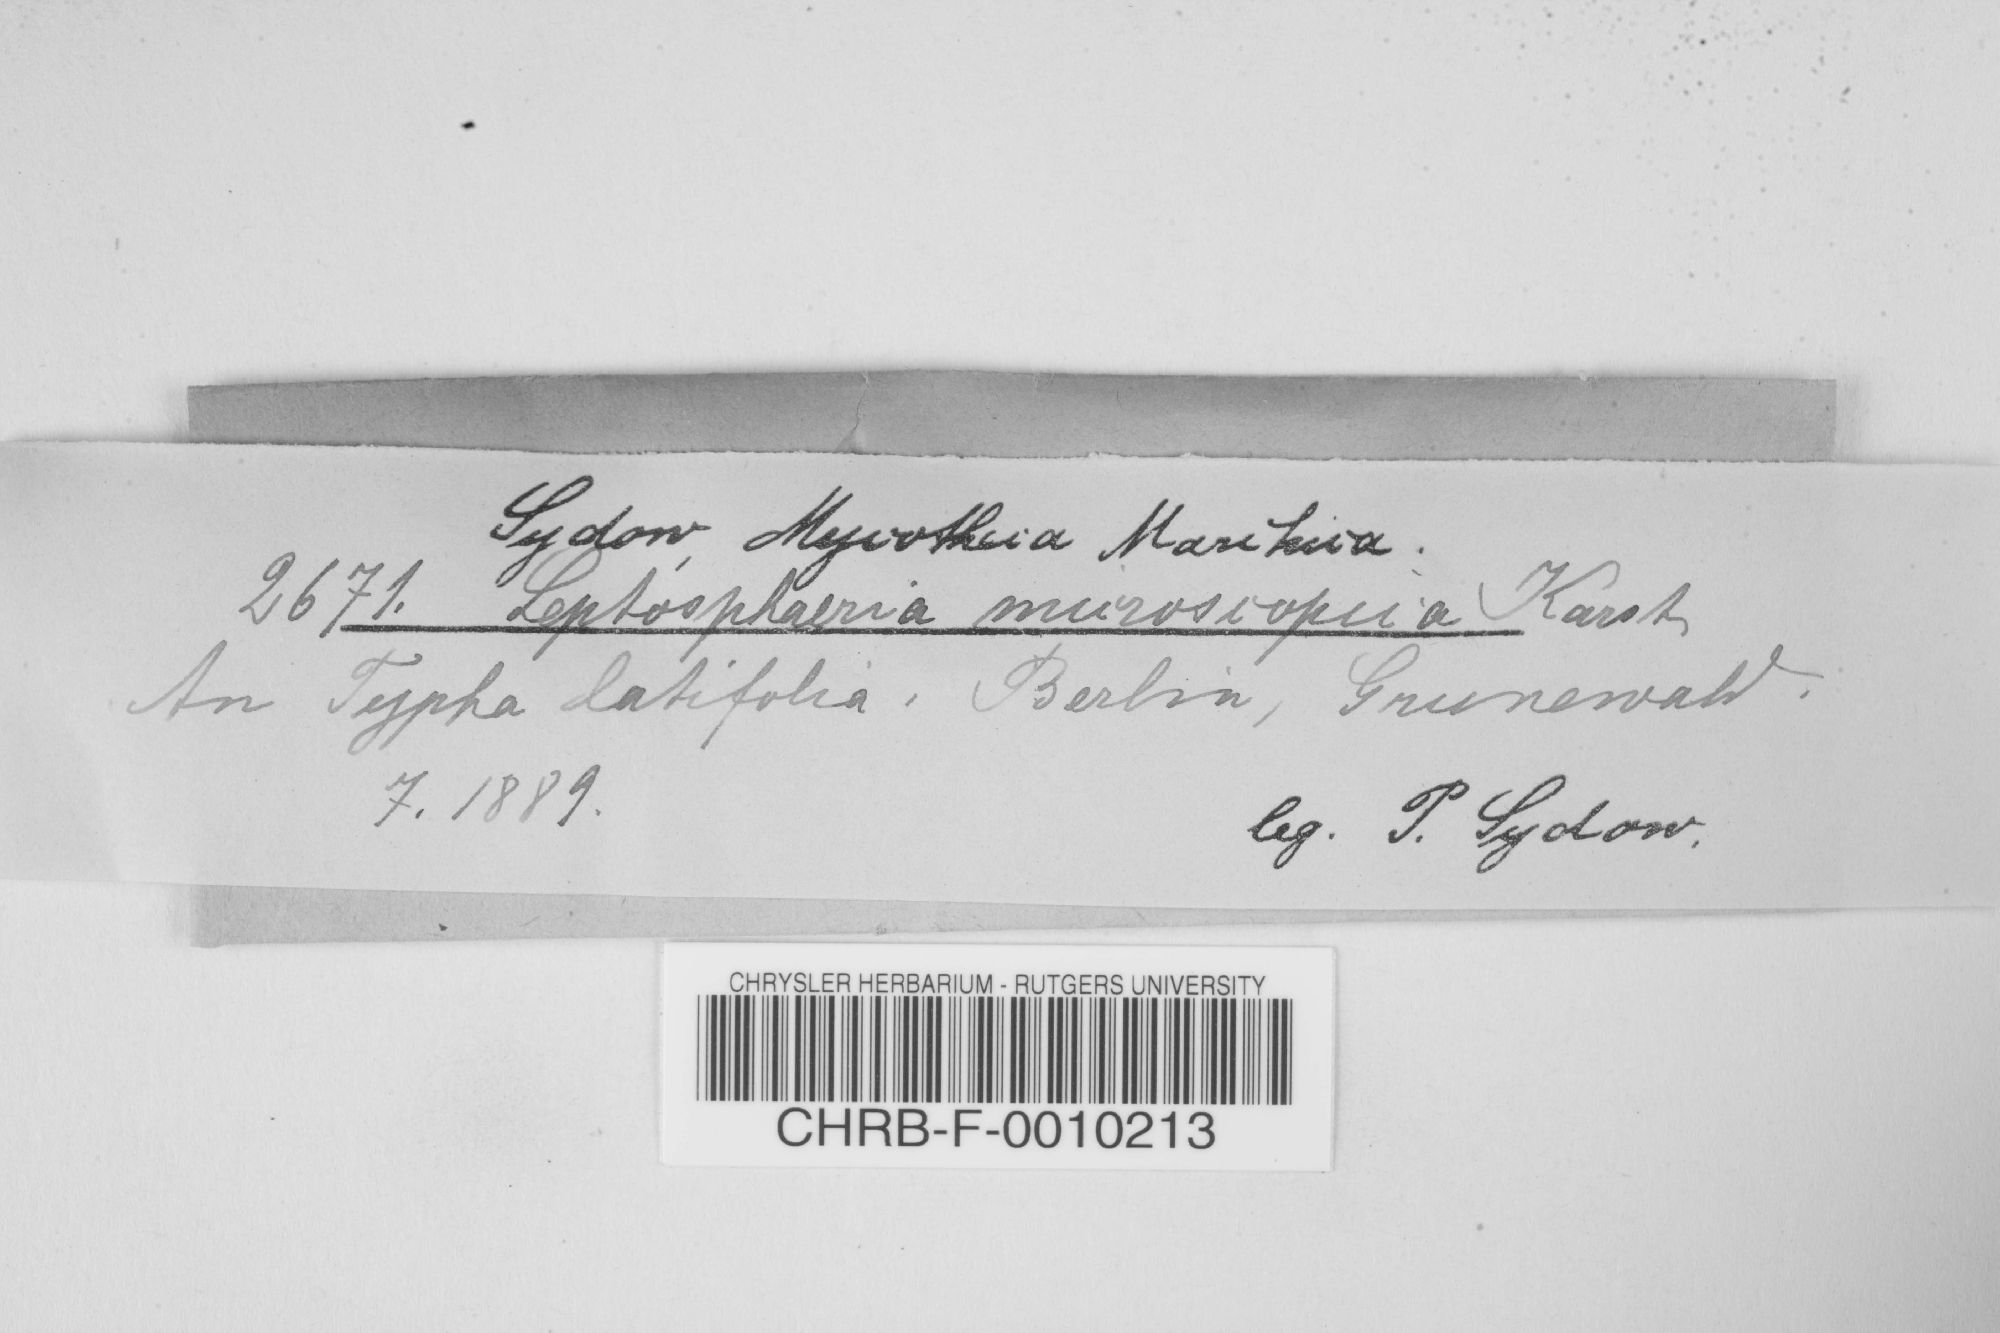 Sydow, Mycotheca Marchica.
2671. Leptosphaeria microscopica Karst.
An Typha latifolia. Berlin, Grunewald.
7. 1889.
leg. P. Sydow.
CHRYSLER HERBARIUM - RUTGERS UNIVERSITY
CHRB-F-0010213